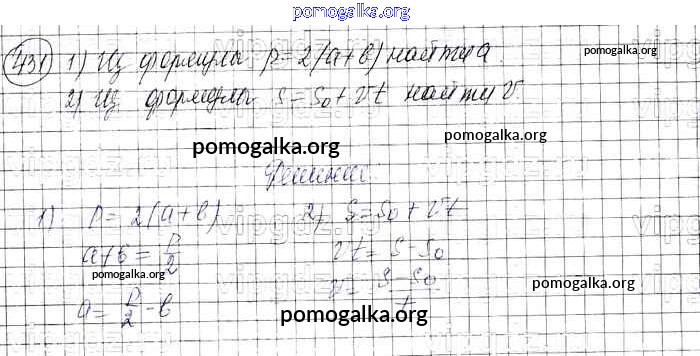 pomogalka.org
431 1) Из формулы p=2(a+b) найти a
pomogalka.org
2) Из формулы s=s₀+vt найти v.
pomogalka.org
pomogalka.org
Решение:
1) p=2(a+b) 2) s=s₀+vt
a+b=p/2 vt=s-s₀
pomogalka.org
v=(s-s₀)/t
pomogalka.org
a=p/2-b
pomogalka.org